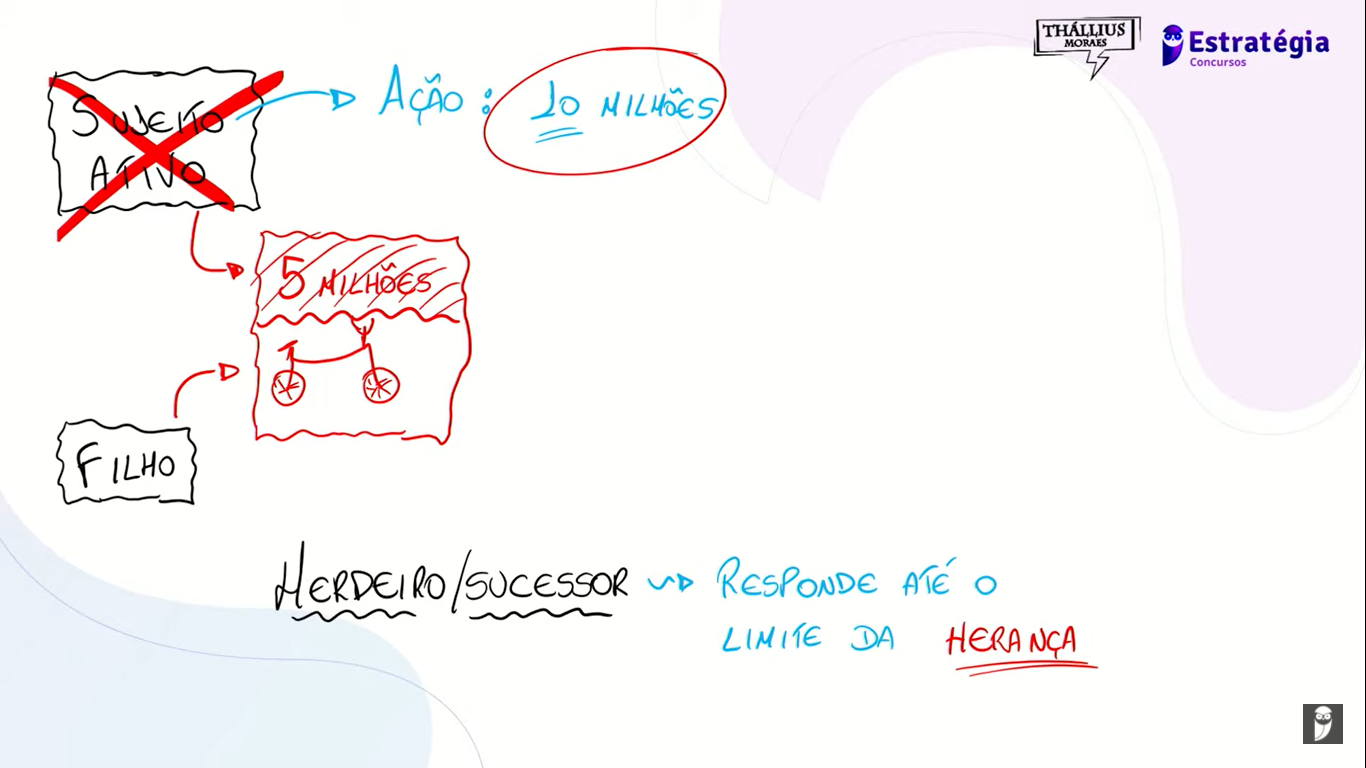 THÁLLIUS
MORAES
Estratégia
Concursos
SUJEITO
ATIVO
AÇÃO : 10 MILHÕES
5 MILHÕES
FILHO
HERDEIRO/SUCESSOR
RESPONDE ATÉ O
LIMITE DA HERANÇA